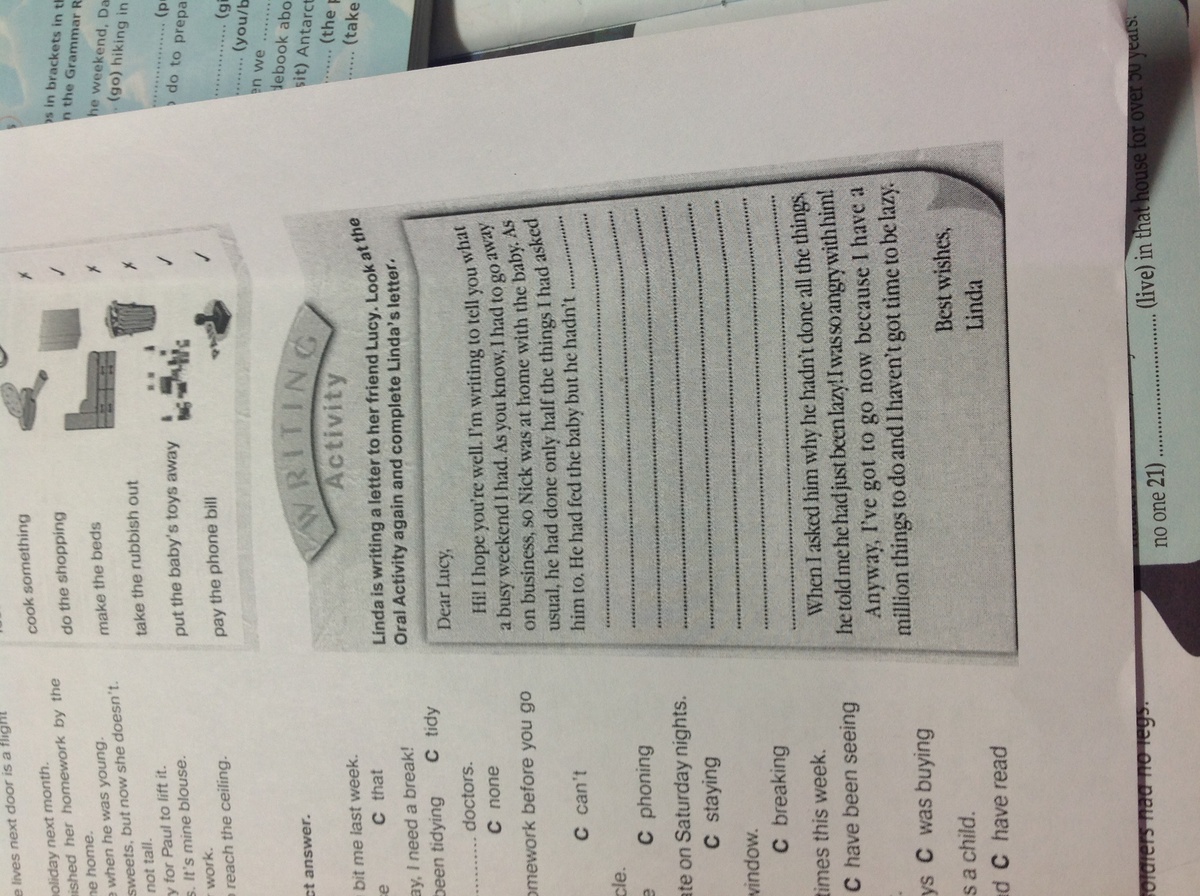 cook something ✗
do the shopping ✓
make the beds ✗
take the rubbish out ✗
put the baby's toys away ✓
pay the phone bill ✓
WRITING
Activity
Linda is writing a letter to her friend Lucy. Look at the
Oral Activity again and complete Linda's letter.
Dear Lucy,
Hi! I hope you're well. I'm writing to tell you what
a busy weekend I had. As you know, I had to go away
on business, so Nick was at home with the baby. As
usual, he had done only half the things I had asked
him to. He had fed the baby but he hadn't ..............
When I asked him why he hadn't done all the things,
he told me he had just been lazy! I was so angry with him!
Anyway, I've got to go now because I have a
million things to do and I haven't got time to be lazy.
Best wishes,
Linda
lives next door is a flight
holiday next month.
her homework by the
home.
when he was young.
sweets, but now she doesn't.
not tall.
for Paul to lift it.
It's mine blouse.
work.
reach the ceiling.
answer.
bit me last week.
C that
I need a break!
been tidying C tidy
.......... doctors.
C none
before you go
C can't
C phoning
on Saturday nights.
C staying
C breaking
times this week.
C have been seeing
C was buying
a child.
C have read
in brackets in
the Grammar
weekend,
(go) hiking in
do to
(you/
we ........
Antarct
(the
(take
no one 21) .................... (live) in that house for over 50 years.
had no legs.